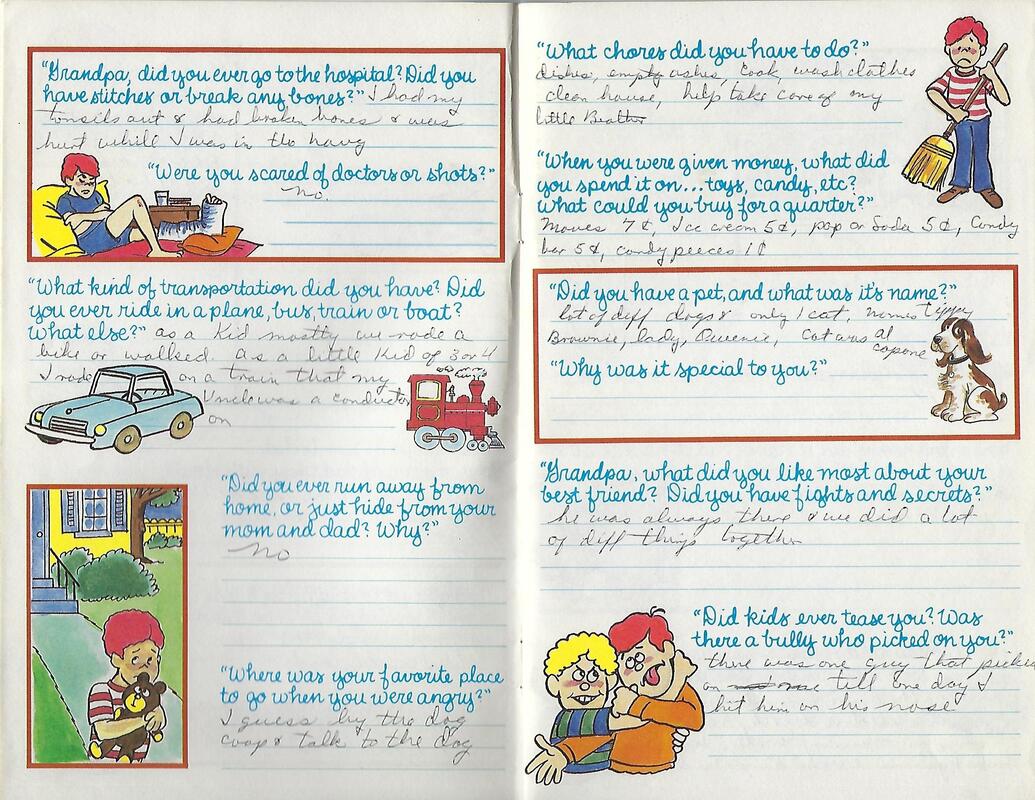 "Grandpa, did you ever go to the hospital? Did you
have stitches or break any bones?" I had my
tonsils out & had broken bones & was
hurt whill I was in the navy
"Were you scared of doctors or shots?"
no.
"What kind of transportation did you have? Did
you ever ride in a plane, bus, train or boat?
What else?" as a Kid mostly we rode a
bike or walked. as a little Kid of 3 or 4
I rode on a train that my
Uncle was a conductor
on
"Did you ever run away from
home, or just hide from your
mom and dad? Why?"
no
"Where was your favorite place
to go when you were angry?"
I guess by the dog
coop & talk to the dog
"What chores did you have to do?"
Dishes, empty ashes, cook, wash clothes
clean house, help take care of my
little Brother
"When you were given money, what did
you spend it on...toys, candy, etc?
What could you buy for a quarter?"
Moves 7¢, Ice cream 5¢, pop or Soda 5¢, Candy
bar 5¢, candy peeces 1¢
"Did you have a pet, and what was it's name?"
lot of diff dogs & only 1 cat, names Tippy
Brownie, lady, cat was al
capone
"Why was it special to you?"
"Grandpa, what did you like most about your
best friend? Did you have fights and secrets?"
he was always there & we did a lot
of diff things together
"Did kids ever tease you? Was
there a bully who picked on you?"
there was one guy that picked
on me till one day I
hit him on his nose